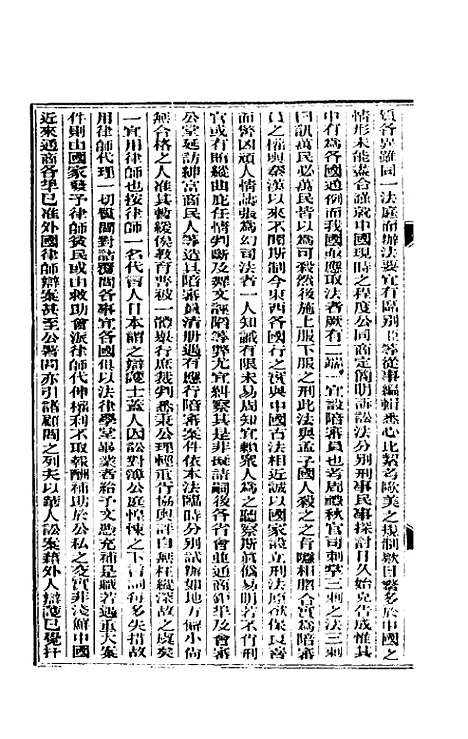 質各異雖同一法庭而辦法要宜有區別臣等從事編輯悉心比絜考歐美之規制款目繁多於中國之
情形未能盡合謹就中國現時之程度公同商定簡明訴訟法分別刑事民事探討日久始克告成惟其
中有為各國通例而我國亟應取法者厥有二端一宜設陪審員也考周禮秋官司刺掌三刺之法三刺
曰訊萬民必萬民皆以為可殺然後施上服下服之刑此法與孟子國人殺之之旨隱相脗合實為陪審
員之權與秦漢以來不聞斯制今東西各國行之實與中國古法相近誠以國家設立刑法原欲保良善
而警凶頑人情譸張為幻司法者一人知識有限未易周知宜賴眾人為之聽察斯真偽易明若不肖刑
官或有賄縱曲庇任情判斷及舞文誣陷等弊尤宜糾察其是非擬請嗣後各省會並通商鉅埠及會審
公堂延訪紳富商民人等造具陪審員清册遇有應行陪審案件依本法臨時分別試辦如地方僻小尚
無合格之人准其暫緩俟教育普被一體舉行庶裁判悉秉公理輕重胥協輿評自無枉縱深故之虞矣
一宜用律師也按律師一名代言人日本謂之辯護士蓋人因訟對簿公庭惶悚之下言詞每多失措故
用律師代理一切質問對詰覆問各事宜各國俱以法律學堂畢業者給予文憑充補是職若遇重大案
件則由國家發予律師貧民或由救助會派律師代伸權利不取報酬補助於公私之交實非淺鮮中國
近來通商各埠已准外國律師辯案甚至公署間亦引諸顧問之列夫以華人訟案藉外人辯護已覺扞